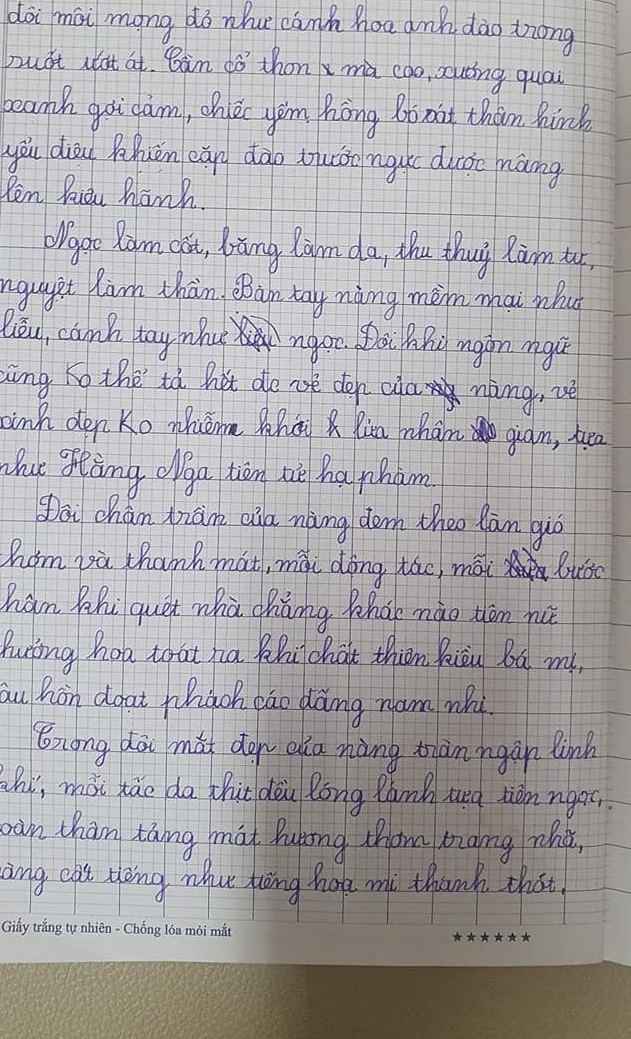 đôi môi mọng đỏ như cánh hoa anh đào trong
suốt ướt át. Cần cổ thon mà cao, xương quai
xanh gợi cảm, chiếc yếm hồng bó sát thân hình
yểu điệu khiến cặp đào trước ngực được nâng
lên kiêu hãnh.
Ngọc làm cốt, băng làm da, thu thuỷ làm tư,
nguyệt làm thần. Bàn tay nàng mềm mại như
liễu, cánh tay như ngọc. Đôi khi ngôn ngữ
cũng ko thể tả hết đc vẻ đẹp của nàng, vẻ
xinh đẹp ko nhiễm khói lửa nhân gian, tựa
như Hằng Nga tiên tử hạ phàm.
Đôi chân trần của nàng đem theo làn gió
thơm và thanh mát, mỗi động tác, mỗi bước
chân khi quét nhà chẳng khác nào tiên nữ
hương hoa toát ra khí chất thiên kiều bá mị,
câu hồn đoạt phách các đấng nam nhi.
Trong đôi mắt đẹp của nàng tràn ngập linh
khí, mỗi tấc da thịt đều lóng lánh tựa tiên ngọc,
toàn thân tảng mát hương thơm trang nhã,
nàng cất tiếng như tiếng hoạ mi thanh thót.
Giấy trắng tự nhiên - Chống lóa mỏi mắt
★★★★★★